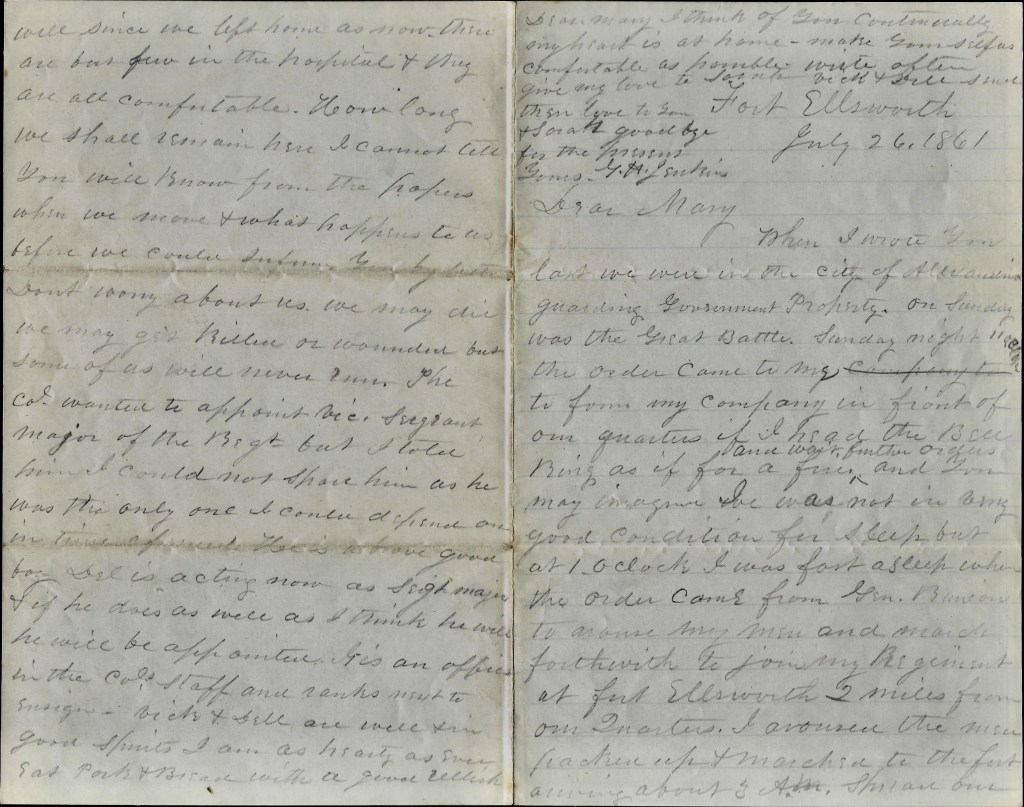 will since we left home as now there
are but few in the hospital & they
are all comfortable. How long
we shall remain here I cannot tell
You will know from the papers
when we move & what happens to us
before we could inform You by letter
Dont worry about us. we may die
we may get Killed or wounded but
some of us will never run. The
Col. wanted to appoint Vic. Sergeant
major of the Regt but I told
him I could not spare him as he
was the only one I could depend on
in time of need. He is a brave good
boy Del is acting now as Sergt major
& if he does as well as I think he will
he will be appointed. It is an office
in the Cols Staff and ranks next to
Ensign - Vick & Dell are well & in
good Spirits I am as hearty as ever
Eat Pork & Bread with a good rellish
Dear mary I think of You Continually
my heart is at home - make Yourself as
comfortable as possible write often
give my love to Sarah Vick & Dell send
their love to You
& Sarah goodbye
for the present
Yours. J. H. Jenkins
Fort Ellsworth
July 26, 1861
Dear Mary
When I wrote You
last we were in the City of Alexandria
guarding Government Property. on Sunday
was the Great Battle. Sunday night 11 oclock
the order came to my Company to
to form my company in front of
our quarters if I head the Bell
and wait further orders
Ring as if for a fire, and You
may imagine I was not in very
good condition for sleep but
at 1 oclock I was fast asleep when
the order came from Gen. Runion
to arouse my men and march
forthwith to join my Regiment
at fort Ellsworth 2 miles from
our Quarters. I aroused the men
packed up & marched to the fort
ariving about 3 A.M. Spread our